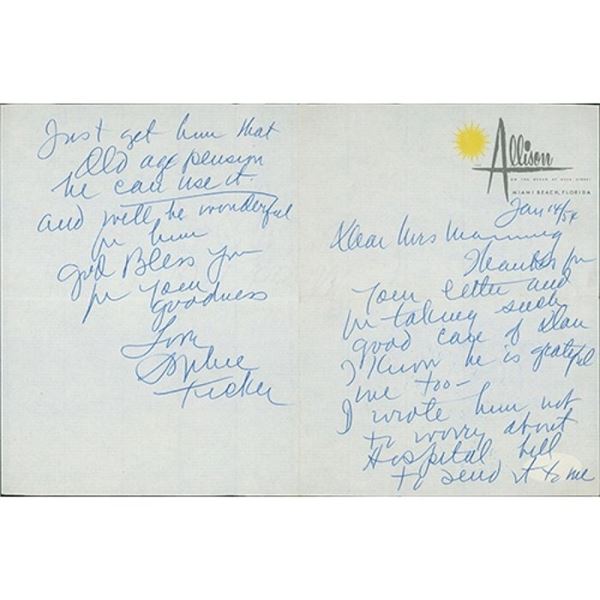 Allison
ON THE OCEAN AT 62ND STREET
MIAMI BEACH, FLORIDA
Jan 14/54
Dear Mrs Manning
Thanks for
your letter and
for taking such
good care of
I know he is grateful
me too -
I wrote him not
to worry about
Hospital bill
to send it to me
Just get him that
Old age pension
he can use it
and will be wonderful
for him
God Bless you
for your
goodness
Love
Sophie
Tucker